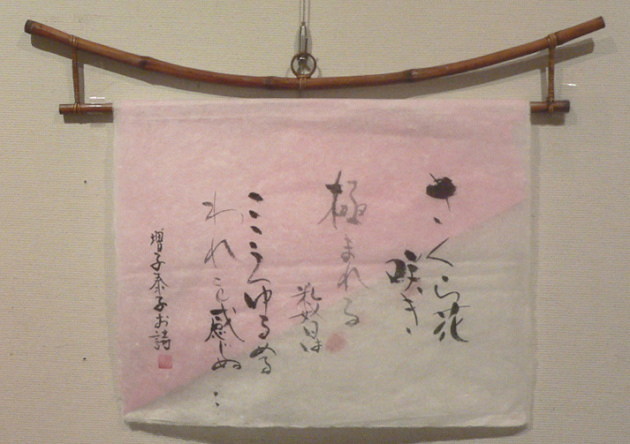 さくら花
咲き
極まれる
数日は
こころゆるめる
われと感じぬ‥
増子泰子お詩